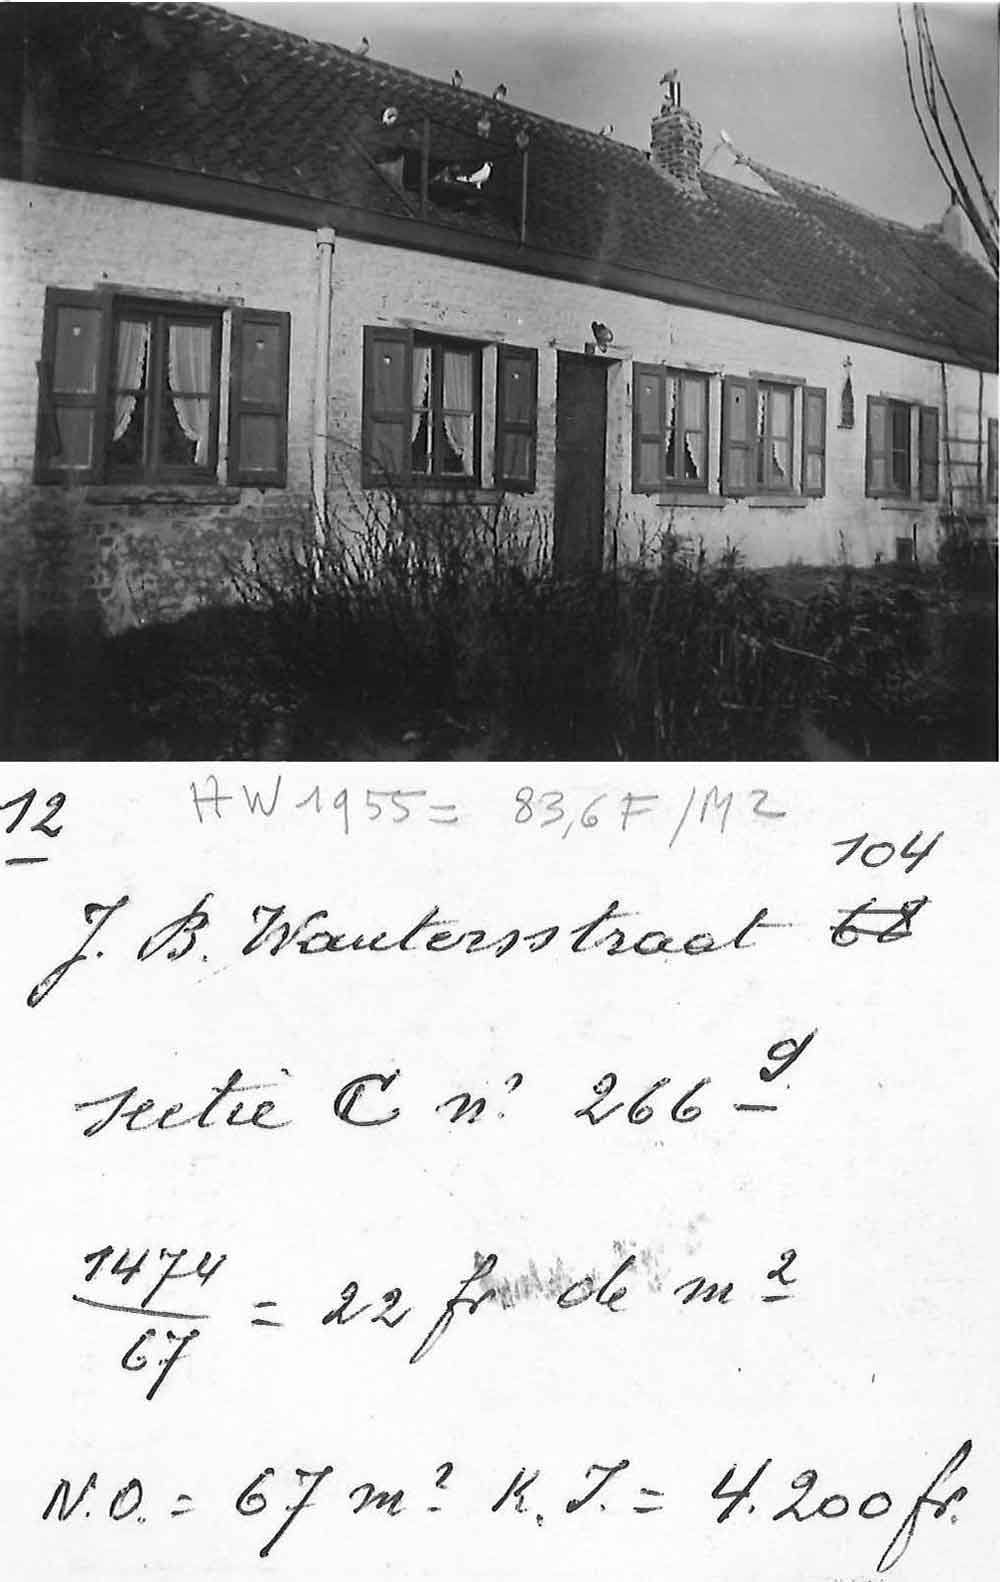 12
HW 1955 = 83,6 F/M2
104
J. B. Wautersstraat 68
sectie C n° 266 g
1474/67 = 22 fr. de m²
N.O. = 67 m² K.I. = 4.200 fr.